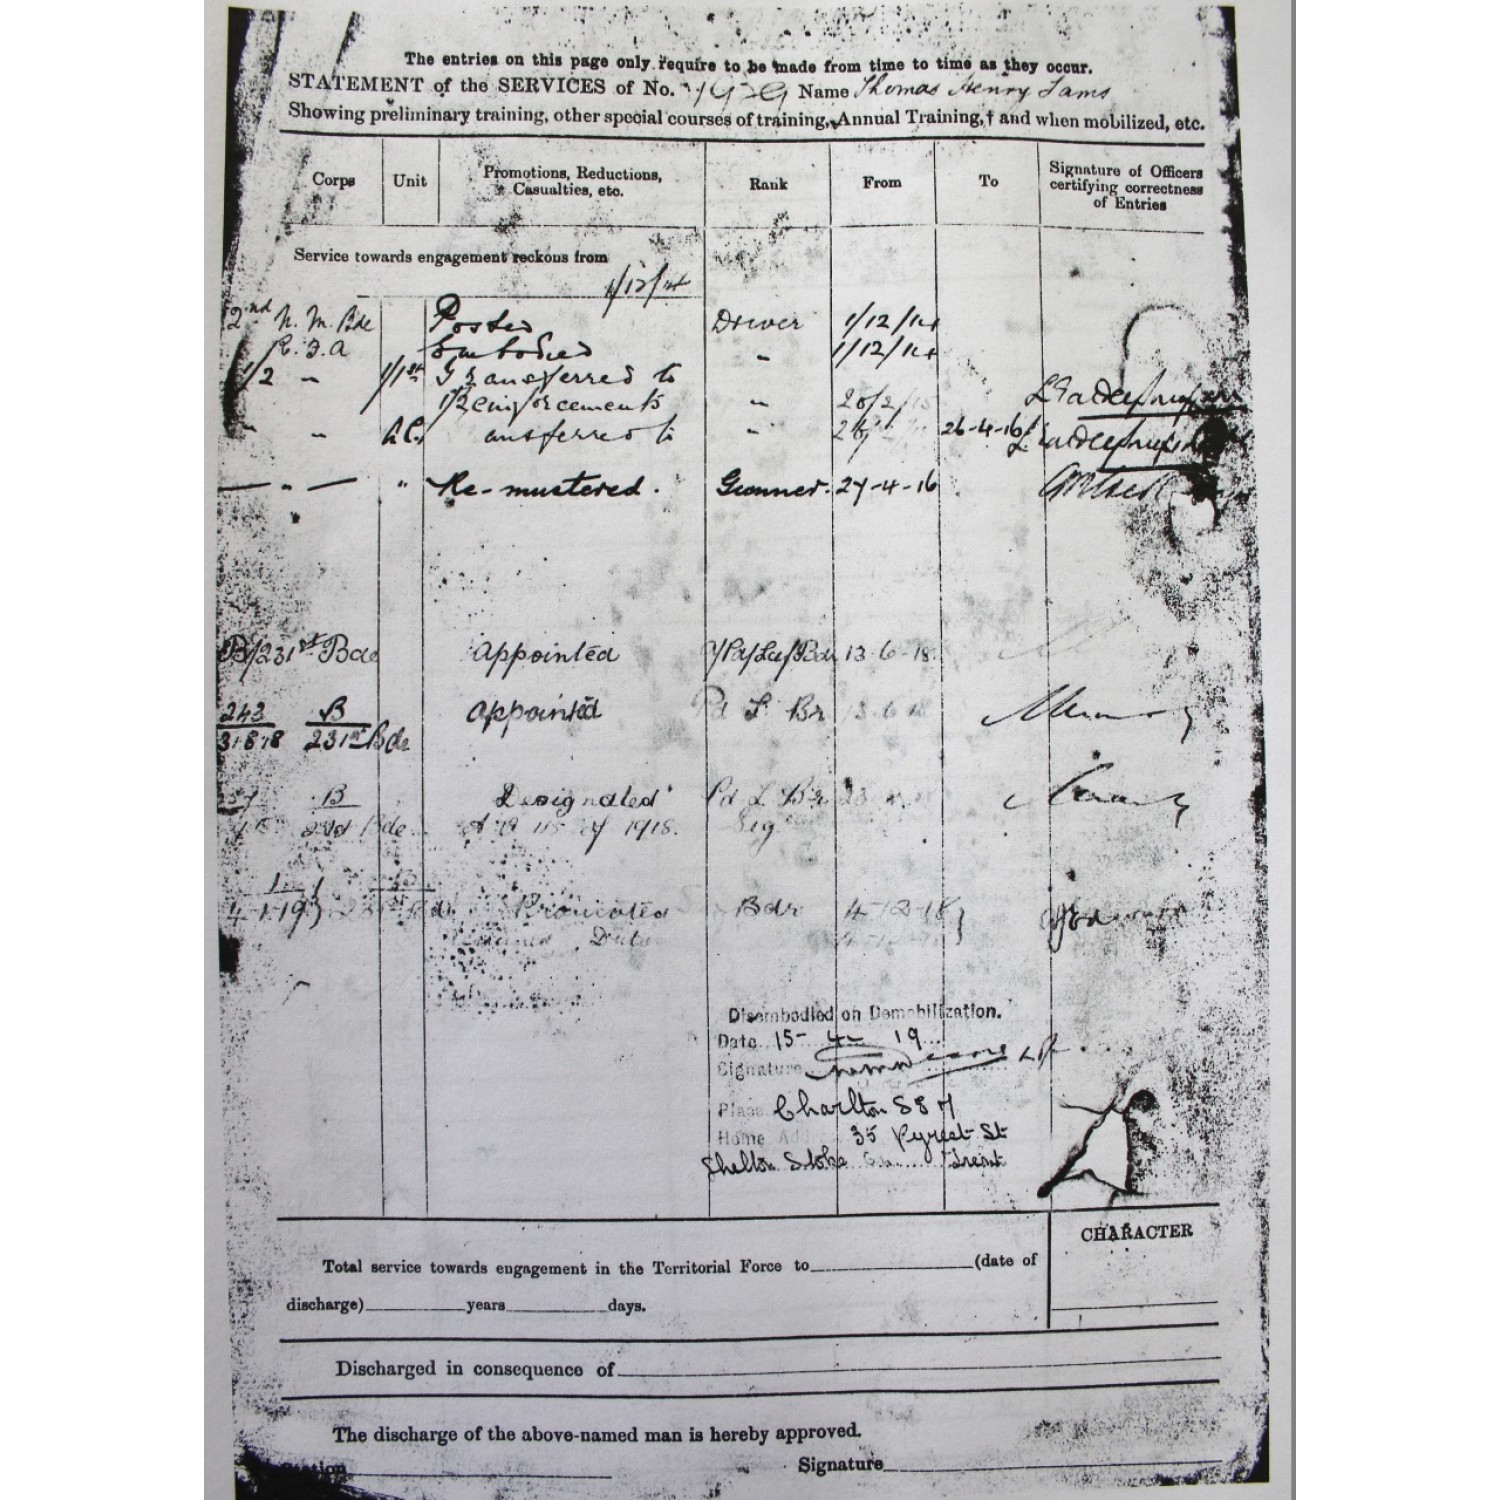 The entries on this page only require to be made from time to time as they occur.
STATEMENT of the SERVICES of No. Name Thomas Henry Tams
Showing preliminary training, other special courses of training, Annual Training,† and when mobilized, etc.
Corps Unit Promotions, Reductions, Casualties, etc. Rank From To Signature of Officers certifying correctness of Entries
Service towards engagement reckons from
1/12/14
2nd N. M. Bde Posted Driver 1/12/14
R. F. A Embodied " 1/12/14
1/2 " 1/1st Transferred to
Reinforcements " 20/2/15
" " A.C. ansferred to " 26-4-16
— " — " Re-mustered. Gunner. 27-4-16
B/231st Bde Appointed Pd/La/Bdr 13-6-18.
243 B Appointed Pd L Br 13-6-18
31-8-18 231st Bde
B Designated Pd L Br 23
Bde 1918. Sig
4-1-19 231st Bde Promoted Bdr 4-12-18
Disembodied on Demobilization.
Date 15- 4- 19
Signature
Place Charlton S E 7
Home Address 35 St
Shelton Stoke on Trent
CHARACTER
Total service towards engagement in the Territorial Force to (date of
discharge) years days.
Discharged in consequence of
The discharge of the above-named man is hereby approved.
Station Signature